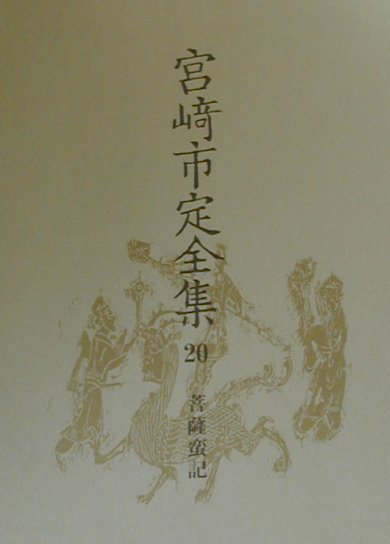 宮﨑市定全集
20
菩薩蛮記